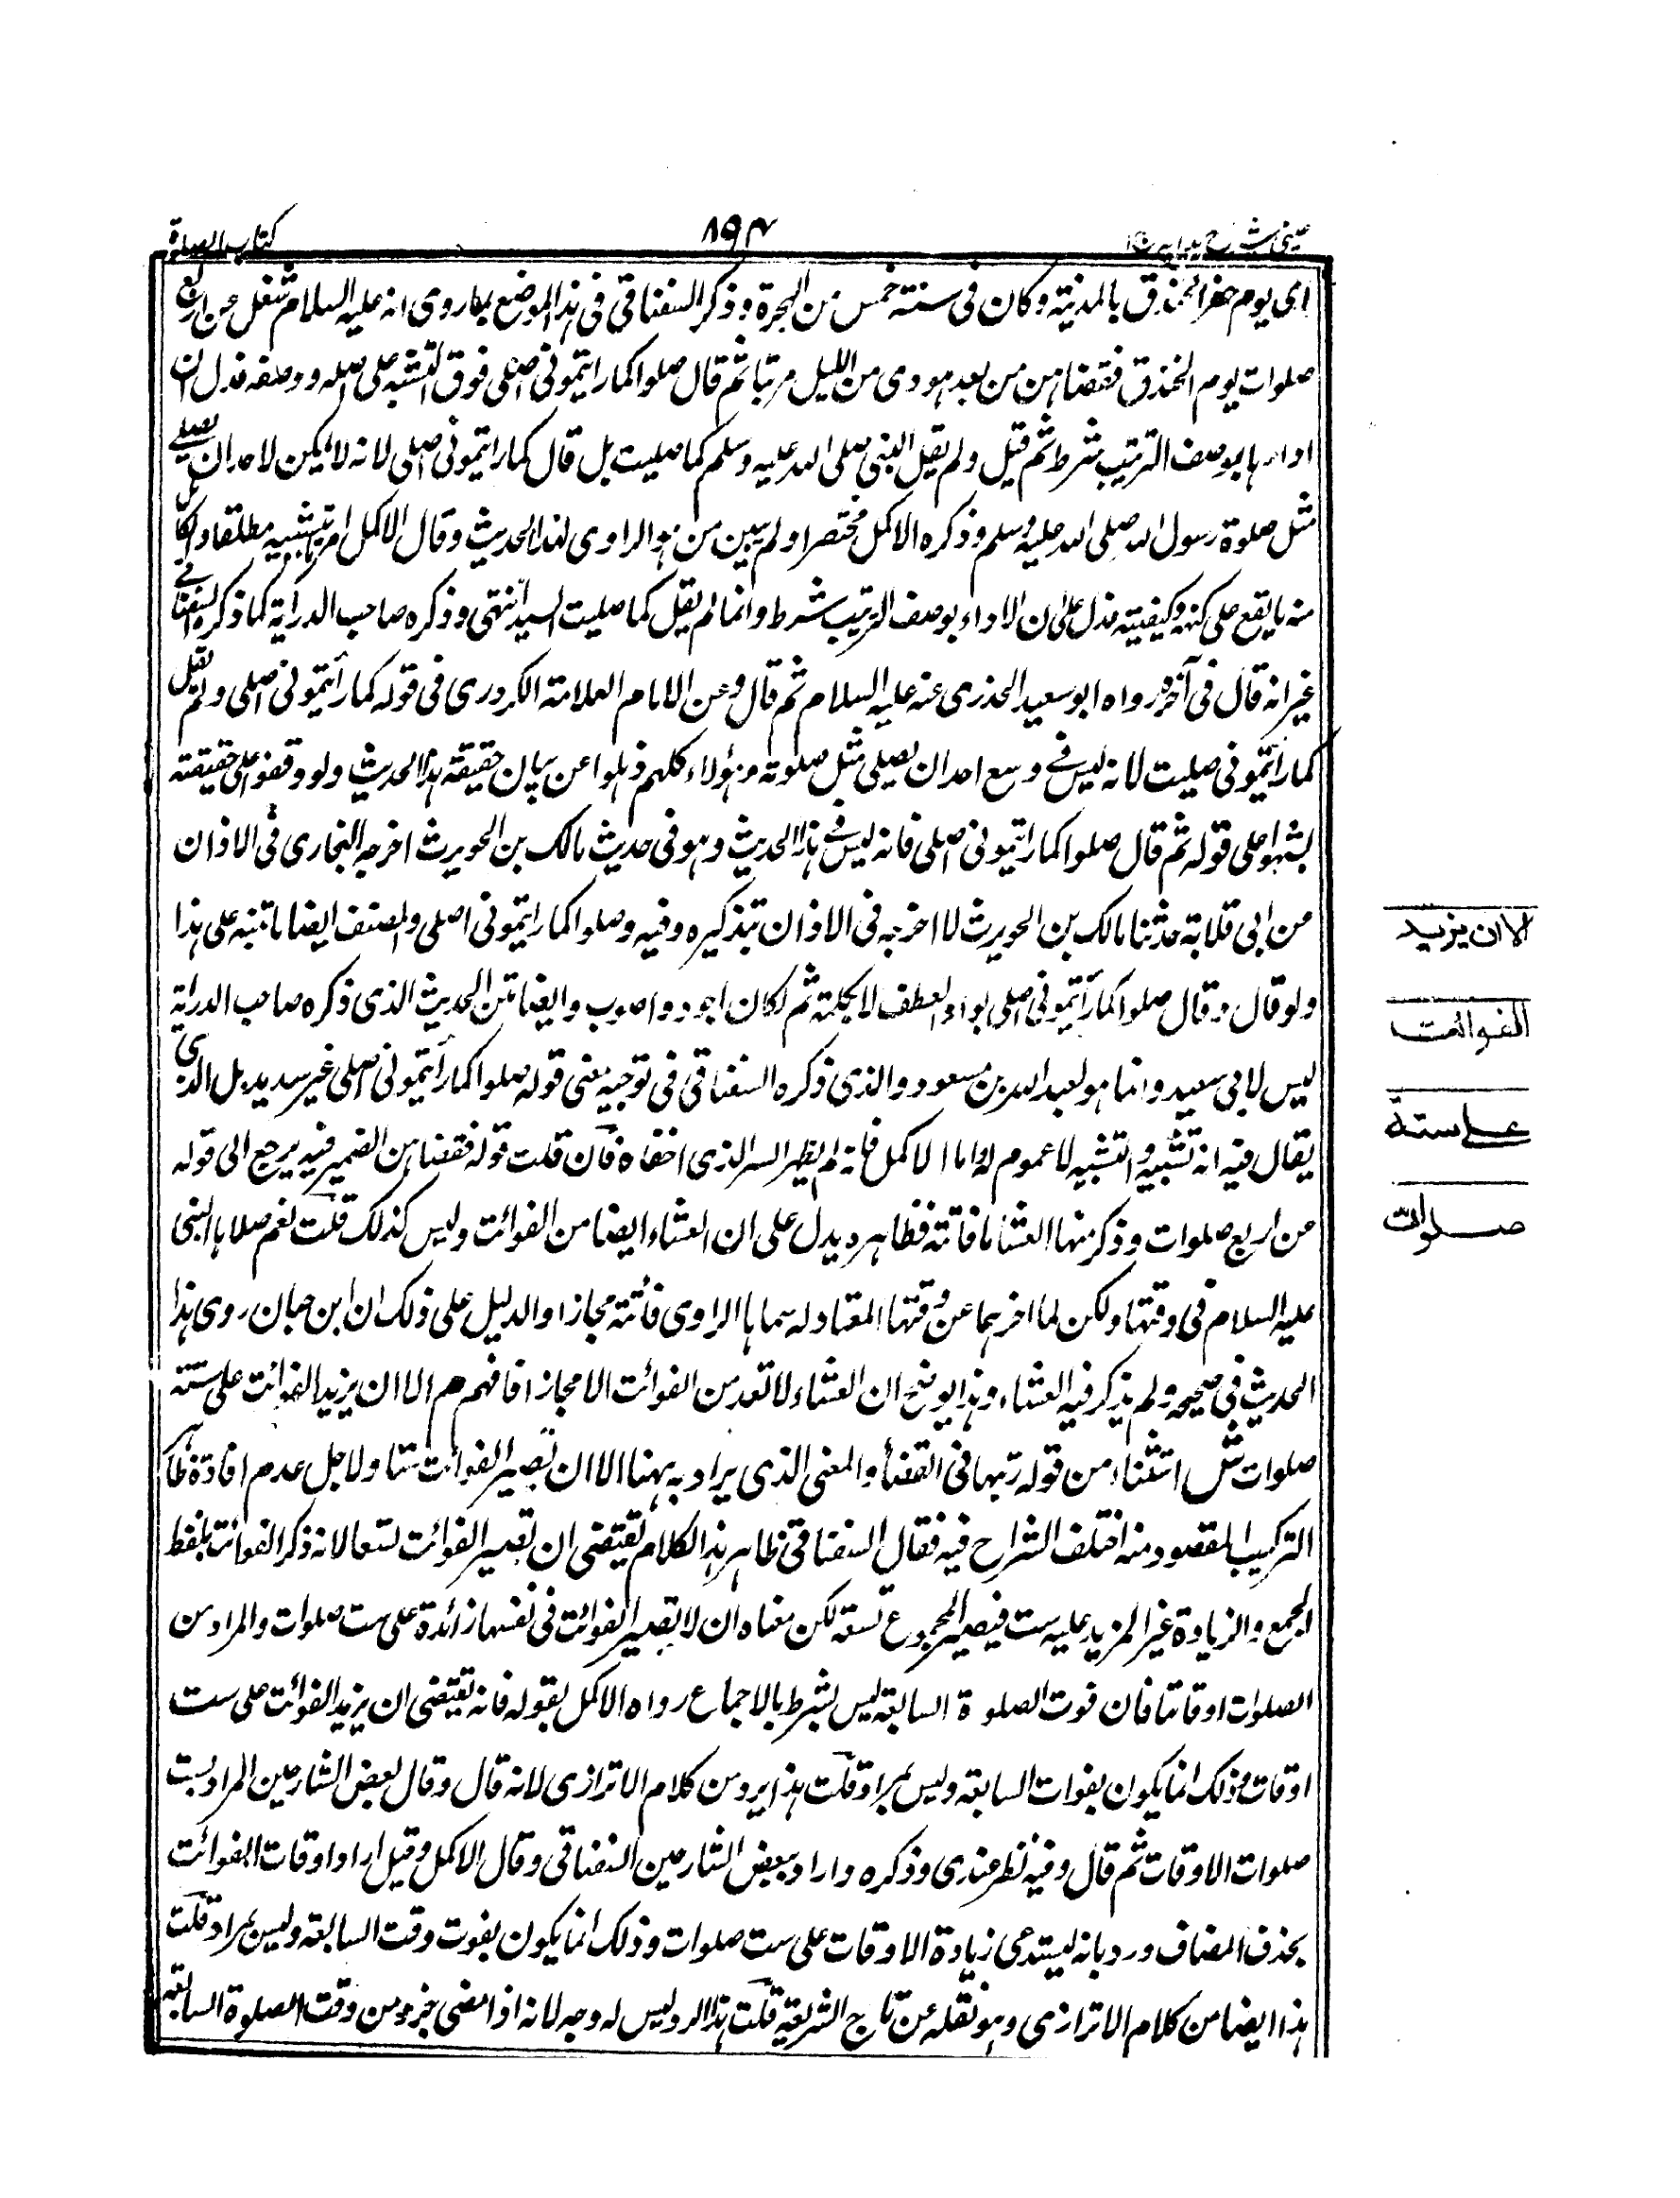 عینی شرح ہدایہ ج ا
٨٩٣
کتاب الصلوۃ
ای یوم حفر الخندق بالمدینۃ وکان فی سنۃ خمس من الہجرۃ وذکر السغناقی فی ہذا الموضع بما روی انہ علیہ السلام شغل عن اربع
صلوات یوم الخندق فقضاہن من بعد ہودی من اللیل مرتبا ثم قال صلوا کما رایتمونی اصلی فوق التشبہ علی اصلہ ووصفہ فدل ان
اداءہا بوصف الترتیب شرط ثم قیل ولم یقل النبی صلی اللہ علیہ وسلم کما صلیت بل قال کما رایتمونی اصلی لانہ لا یمکن لاحد ان یصلی
مثل صلوۃ رسول اللہ صلی اللہ علیہ وسلم وذکرہ الاکمل مختصرا ولم یبین من ہو الراوی لہذا الحدیث وقال الاکمل امر بتشبیہ مطلقا والکامل
منہ ما یقع علی کنہہ وکیفیتہ فدل علی ان الاداء بوصف الترتیب شرط وانما لم یقل کما صلیت الیہ انتہی وذکرہ صاحب الدرایۃ کما ذکرہ السغناقی
غیر انہ قال فی آخرہ رواہ ابو سعید الخدری عنہ علیہ السلام ثم قال وعن الامام العلامۃ الکردری فی قولہ کما رأیتمونی اصلی ولم یقل
کما رأیتمونی صلیت لانہ لیس فے وسع احد ان یصلی مثل صلوتہ وہؤلاء کلہم ذہلوا عن بیان حقیقۃ ہذا الحدیث ولو وقفوا علی حقیقتہ
لنبہوا علی قولہ ثم قال صلوا کما رایتمونی اصلی فانہ لیس فے ہذا الحدیث وہو فی حدیث مالک بن الحویرث اخرجہ البخاری فی الاذان
من ابی قلابۃ حدثنا مالک بن الحویرث لا اخرجہ فی الاذان بتذکیرہ وفیہ وصلوا کما رایتمونی اصلی والمصنف ایضا ما تنبہ علی ہذا
ولو قال وقال صلوا کما رأیتمونی اصلی بواو العطف لا بکلمۃ ثم لکان اجود واصوب وایضا متن الحدیث الذی ذکرہ صاحب الدرایۃ
لیس لابی سعید وانما ہو لعبد اللہ بن مسعود والذی ذکرہ السغناقی فی توجیہ معنی قولہ صلوا کما رأیتمونی اصلی غیر سدید بل الذی
یقال فیہ انہ تشبیہ والتشبیہ لا عموم لہ واما الاکمل فانہ لم یظہر السر الذی اخفاہ فان قلت قولہ فقضاہن الضمیر فیہ یرجع الی قولہ
عن اربع صلوات وذکر منہا العشاء فائتۃ فظاہرہ یدل علی ان العشاء ایضا من الفوائت ولیس کذلک قلت نعم صلاہا النبی
علیہ السلام فی وقتہا ولکن لما اخرہا عن وقتہا المعتاد لہ سماہا الراوی فائتۃ مجازا والدلیل علی ذلک ان ابن حبان روی ہذا
الحدیث فی صحیحہ ولم یذکر فیہ العشاء وہذا یوضح ان العشاء لا تعد من الفوائت الا مجازا فافہم م الا ان یزید الفوائت علی ستۃ
صلوات ش استثناء من قولہ رتبہا فی القضاء والمعنی الذی یراد بہ ہہنا الا ان تصیر الفوائت ستا ولاجل عدم افادۃ ظاہر
الترکیب المقصود منہ اختلف الشراح فیہ فقال السغناقی ظاہر ہذا الکلام یقتضی ان تصیر الفوائت تسعا لانہ ذکر الفوائت بلفظ
الجمع والزیادۃ غیر المزید علیہ ست فیصیر المجموع تسعۃ لکن معناہ ان لا تصیر الفوائت فی نفسہا زائدۃ علی ست صلوات والمراد من
الصلوات اوقاتہا فان فوت الصلوۃ السابقۃ لیس بشرط بالاجماع رواہ الاکمل بقولہ فانہ یقتضی ان یزید الفوائت علی ست
اوقات وذلک انما یکون بفوات السابقہ ولیس بمراد قلت ہذا یرد من کلام الاترازی لانہ قال وقال بعض الشارحین المراد بست
صلوات الاوقات ثم قال وفیہ نظر عندی وذکرہ واراد ببعض الشارحین السغناقی وقال الاکمل وقیل اراد اوقات الفوائت
بحذف المضاف ورد بانہ لیستدعی زیادۃ الاوقات علی ست صلوات وذلک انما یکون بفوت وقت السابعۃ ولیس بمراد قلت
ہذا ایضا من کلام الاترازی وہو نقلہ عن تاج الشریعۃ قلت ہذا الرد لیس لہ وجہ لانہ اذا مضی جزء من وقت الصلوۃ السابعۃ
الا ان یزید
الفوائت
علے ستۃ
صلوات